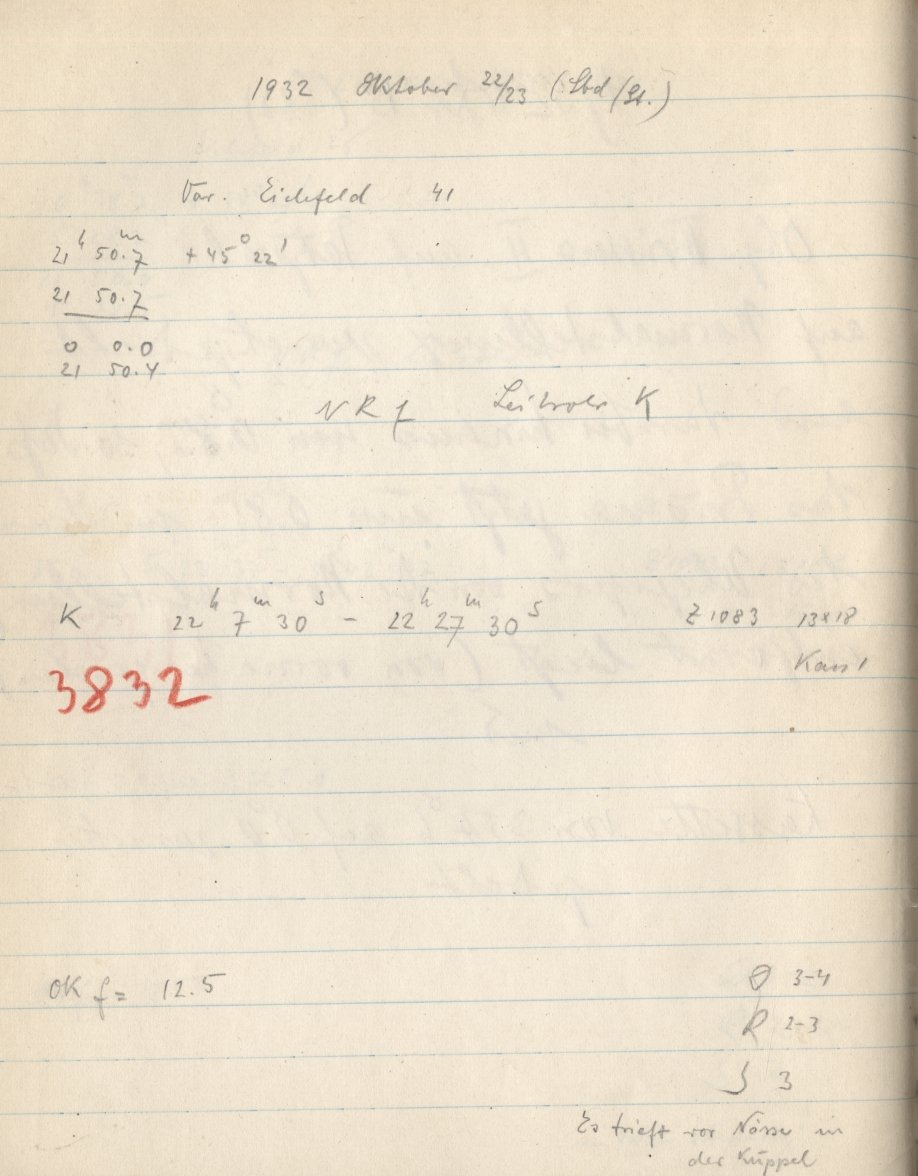 1932 Oktober 22/23 (Sbd/St.)
Var. Eichfeld 41
21ʰ 50.7ᵐ +45° 22'
21 50.7
0 0.0
21 50.4
NRf Leitrohr K
K 22ʰ 7ᵐ 30ˢ - 22ʰ 27ᵐ 30ˢ Z 1083 13x18
Kass 1
3832
OK f= 12.5
3-4
R 2-3
3
Es trieft vor Nässe in
der Kuppel